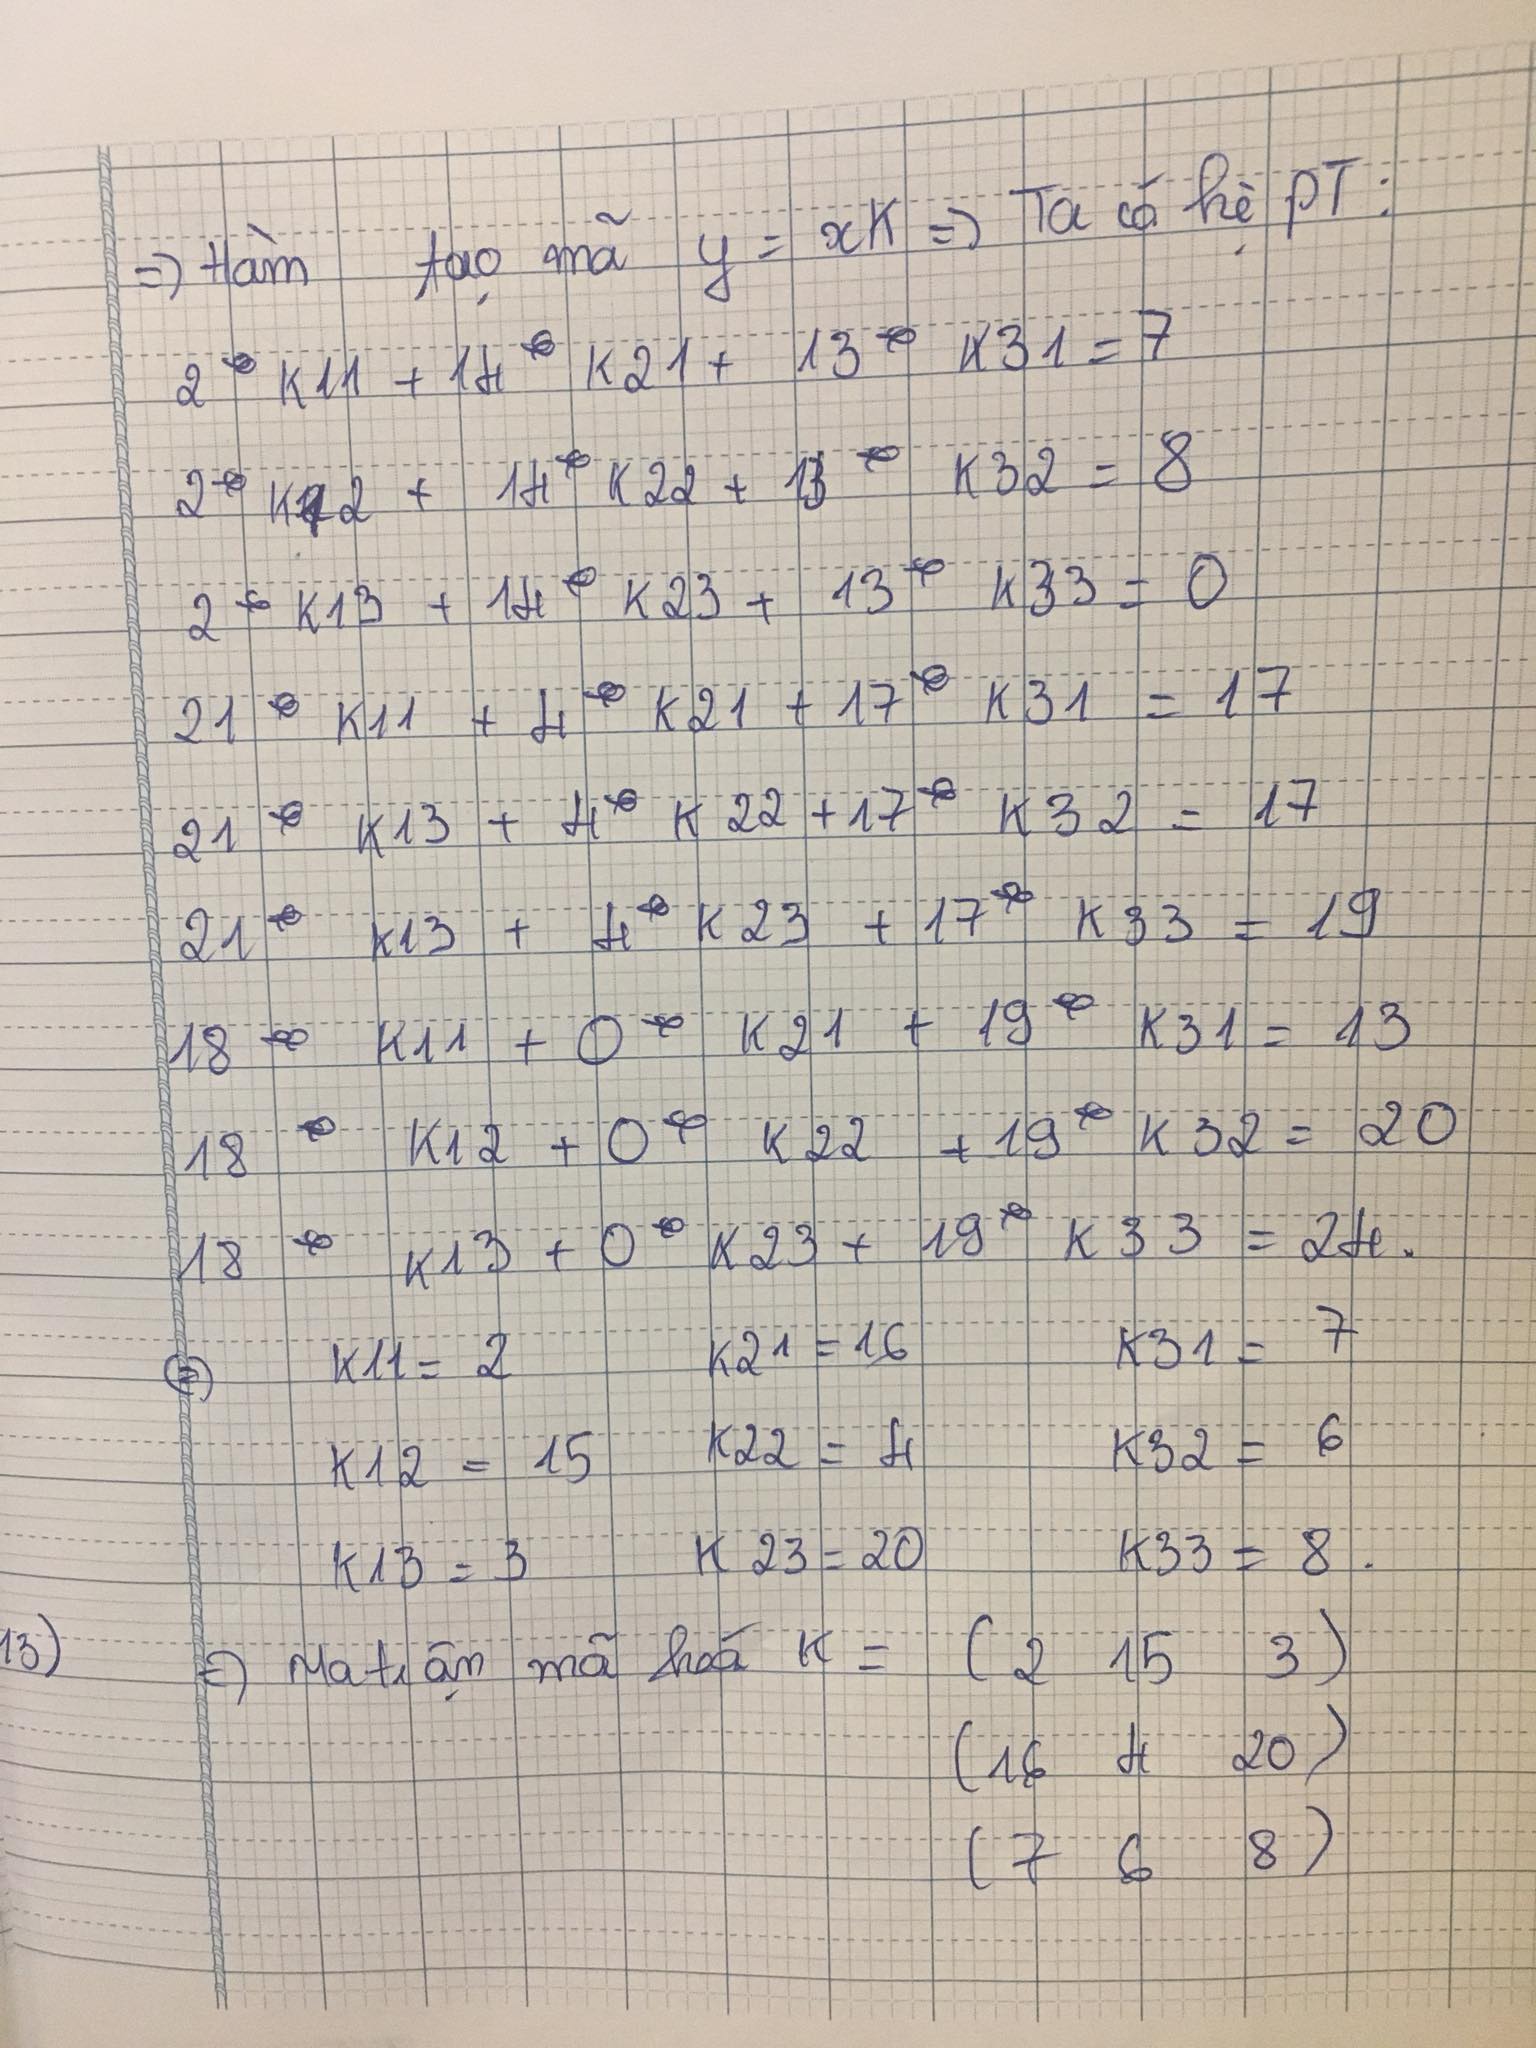 =) Hàm tạo mã y = xK =) Ta có hệ PT:
2 * K11 + 14 * K21 + 13 * K31 = 7
2 * K12 + 14 * K22 + 13 * K32 = 8
2 * K13 + 14 * K23 + 13 * K33 = 0
21 * K11 + 4 * K21 + 17 * K31 = 17
21 * K13 + 4 * K22 + 17 * K32 = 17
21 * K13 + 4 * K23 + 17 * K33 = 19
18 * K11 + 0 * K21 + 19 * K31 = 13
18 * K12 + 0 * K22 + 19 * K32 = 20
18 * K13 + 0 * K23 + 19 * K33 = 24.
(=) K11 = 2 K21 = 16 K31 = 7
K12 = 15 K22 = 4 K32 = 6
K13 = 3 K23 = 20 K33 = 8.
13) =) Ma trận mã hoá K = (2 15 3)
(16 4 20)
(7 6 8)